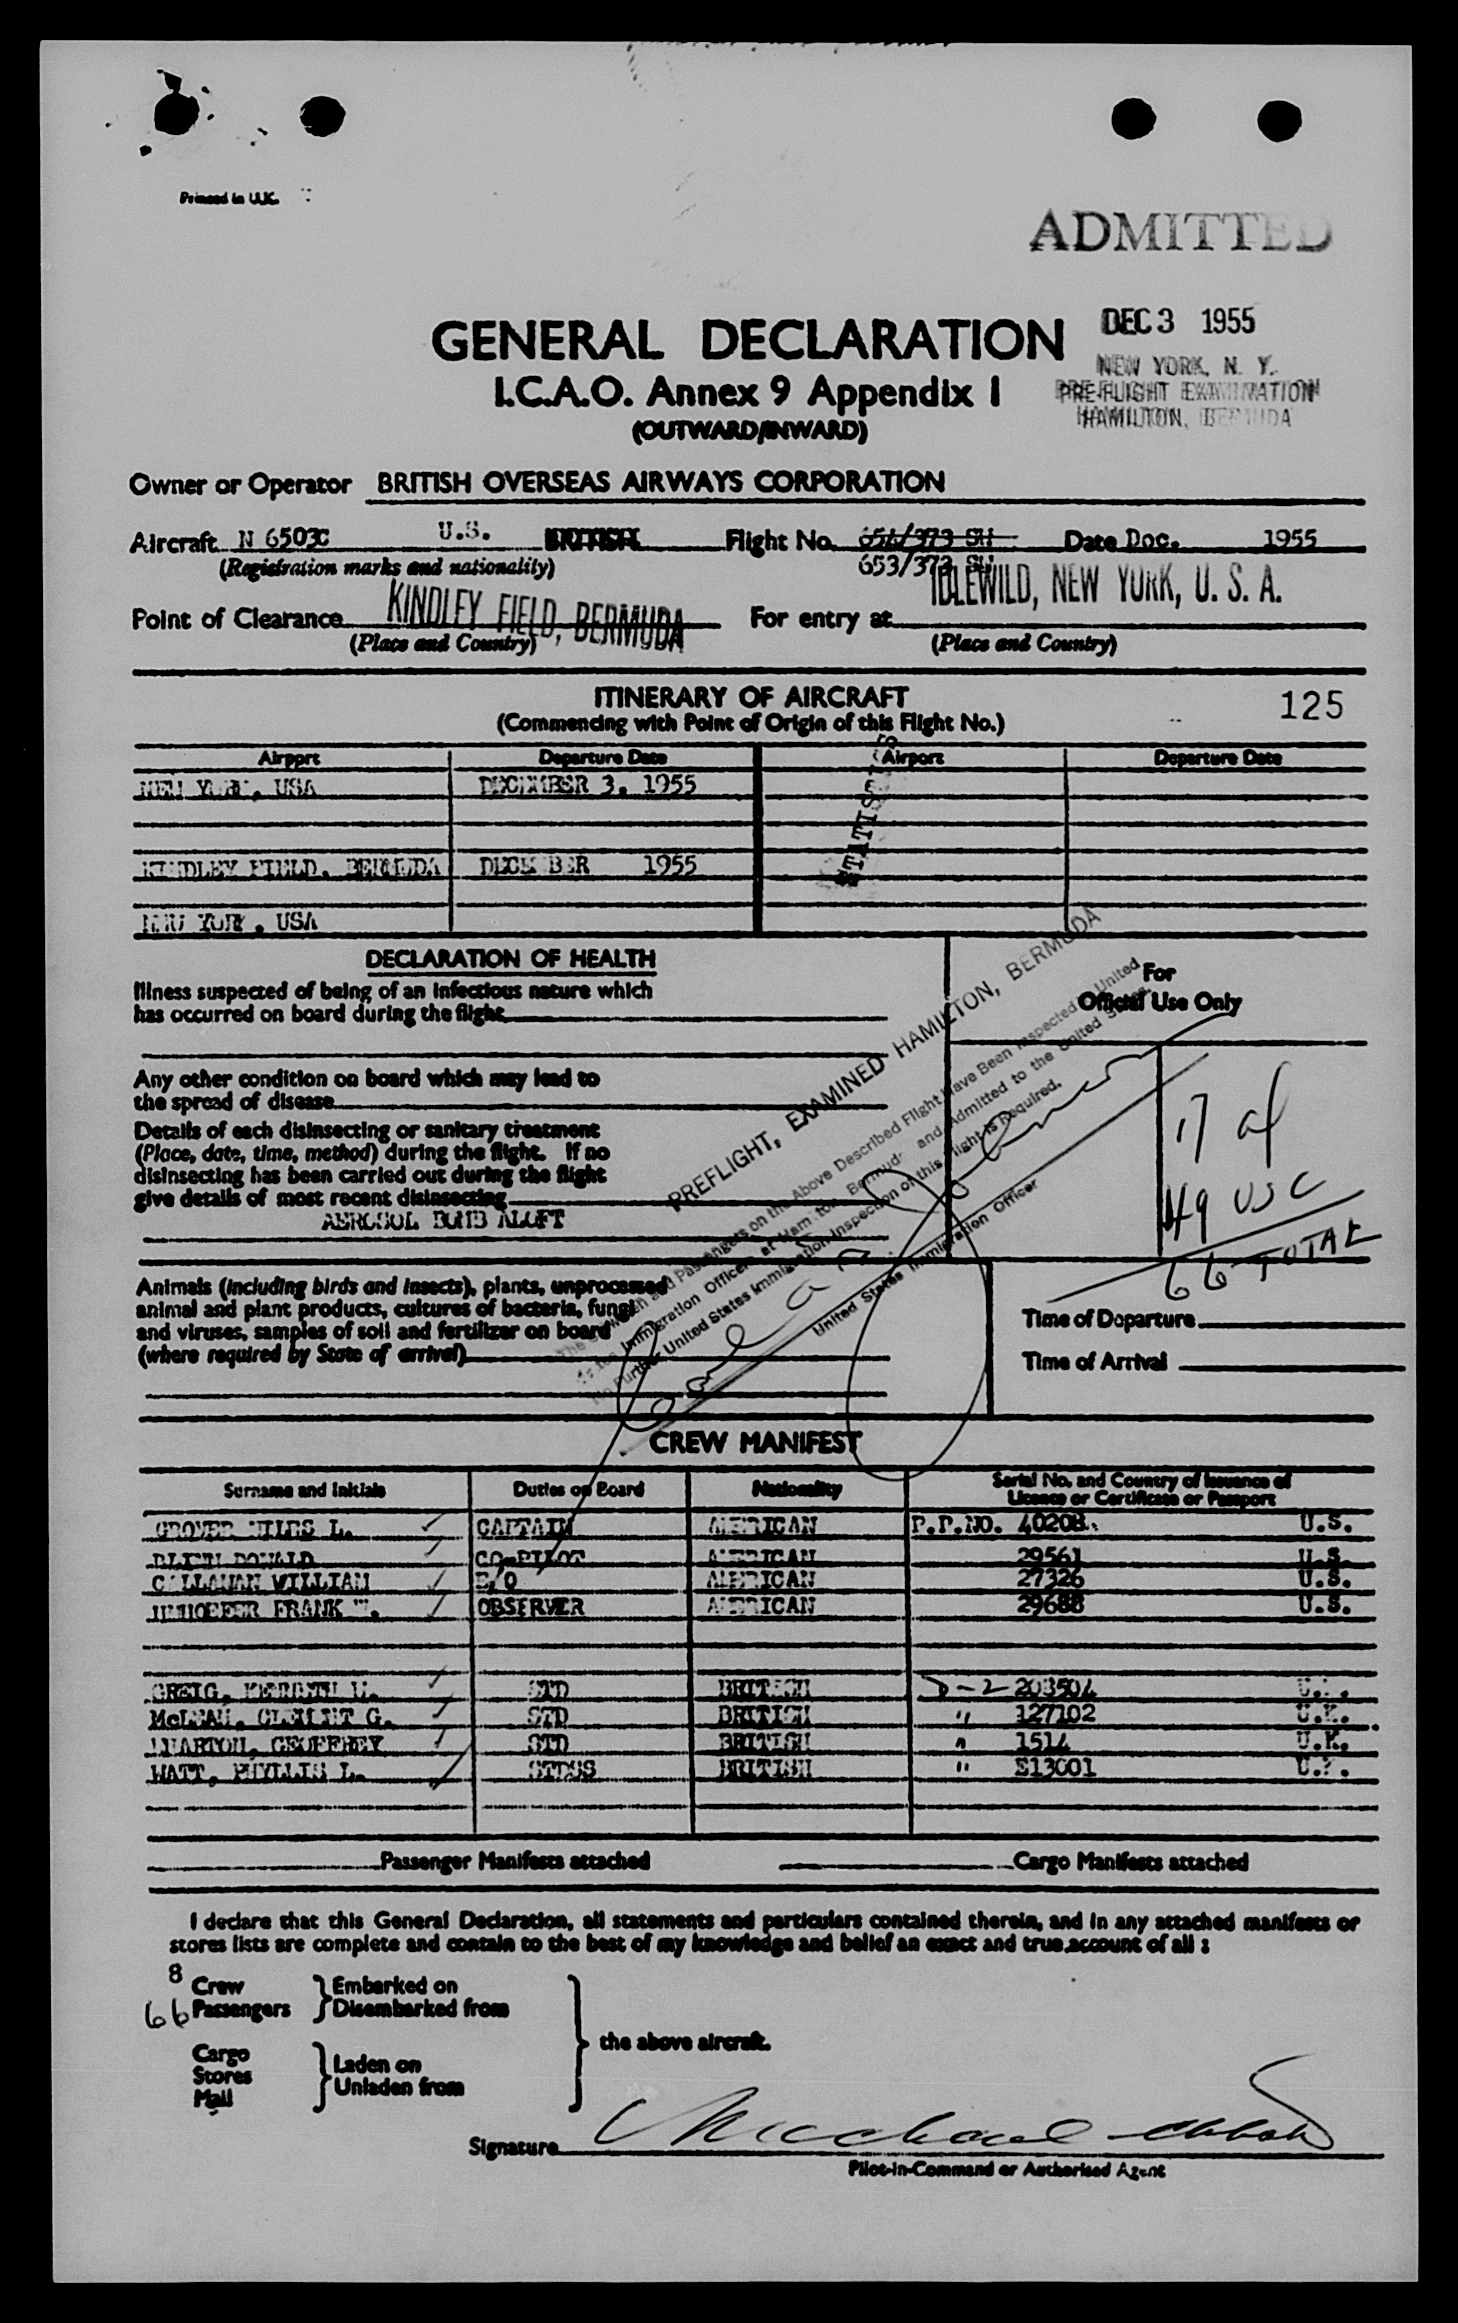 Printed in U.K.
ADMITTED
DEC 3 1955
NEW YORK, N. Y.
PRE-FLIGHT EXAMINATION
HAMILTON, BERMUDA
GENERAL DECLARATION
I.C.A.O. Annex 9 Appendix 1
(OUTWARD/INWARD)
Owner or Operator BRITISH OVERSEAS AIRWAYS CORPORATION
Aircraft N 6503C U.S. BRITISH Flight No. 654/373 SH Date Dec. 1955
(Registration marks and nationality) 653/373 SH
Point of Clearance KINDLEY FIELD, BERMUDA For entry at IDLEWILD, NEW YORK, U. S. A.
(Place and Country) (Place and Country)
ITINERARY OF AIRCRAFT 125
(Commencing with Point of Origin of this Flight No.)
Airport Departure Date Airport Departure Date
NEW YORK, USA DECEMBER 3. 1955
KINDLEY FIELD, BERMUDA DECEMBER 1955
NEW YORK, USA
DECLARATION OF HEALTH
For
Official Use Only
Illness suspected of being of an infectious nature which
has occurred on board during the flight
Any other condition on board which may lead to
the spread of disease
Details of each disinsecting or sanitary treatment
(Place, date, time, method) during the flight. If no
disinsecting has been carried out during the flight
give details of most recent disinsecting
AEROSOL BOMB ALOFT
17 al
49 USC
66 TOTAL
PREFLIGHT, EXAMINED HAMILTON, BERMUDA
The Crewmen and Passengers on the Above Described Flight Have Been Inspected by United
States Immigration Officers at Hamilton Bermuda and Admitted to the United States.
No Further United States Immigration Inspection of this flight is Required.
United States Immigration Officer
Animals (including birds and insects), plants, unprocessed
animal and plant products, cultures of bacteria, fungi
and viruses, samples of soil and fertilizer on board
(where required by State of arrival)
Time of Departure
Time of Arrival
CREW MANIFEST
Surname and Initials Duties on Board Nationality Serial No. and Country of Issuance of
Licence or Certificate or Passport
GROVER MILES L. CAPTAIN AMERICAN P.P.NO. 40208. U.S.
DONALD CO-PILOT AMERICAN 29561 U.S.
CALLAHAN WILLIAM E/O AMERICAN 27326 U.S.
FRANK OBSERVER AMERICAN 29688 U.S.
GREIG, KENNETH STD BRITISH D-2 203504
McLEAN, CLEMENT G. STD BRITISH " 127102 U.K.
WHARTON, GEOFFREY STD BRITISH " 1514 U.K.
WATT, PHYLLIS L. STDSS BRITISH " E13001 U.K.
Passenger Manifests attached Cargo Manifests attached
I declare that this General Declaration, all statements and particulars contained therein, and in any attached manifests or
stores lists are complete and contain to the best of my knowledge and belief an exact and true account of all :
8 Crew Embarked on
66 Passengers Disembarked from
the above aircraft.
Cargo
Stores Laden on
Mail Unladen from
Signature
Pilot-in-Command or Authorised Agent